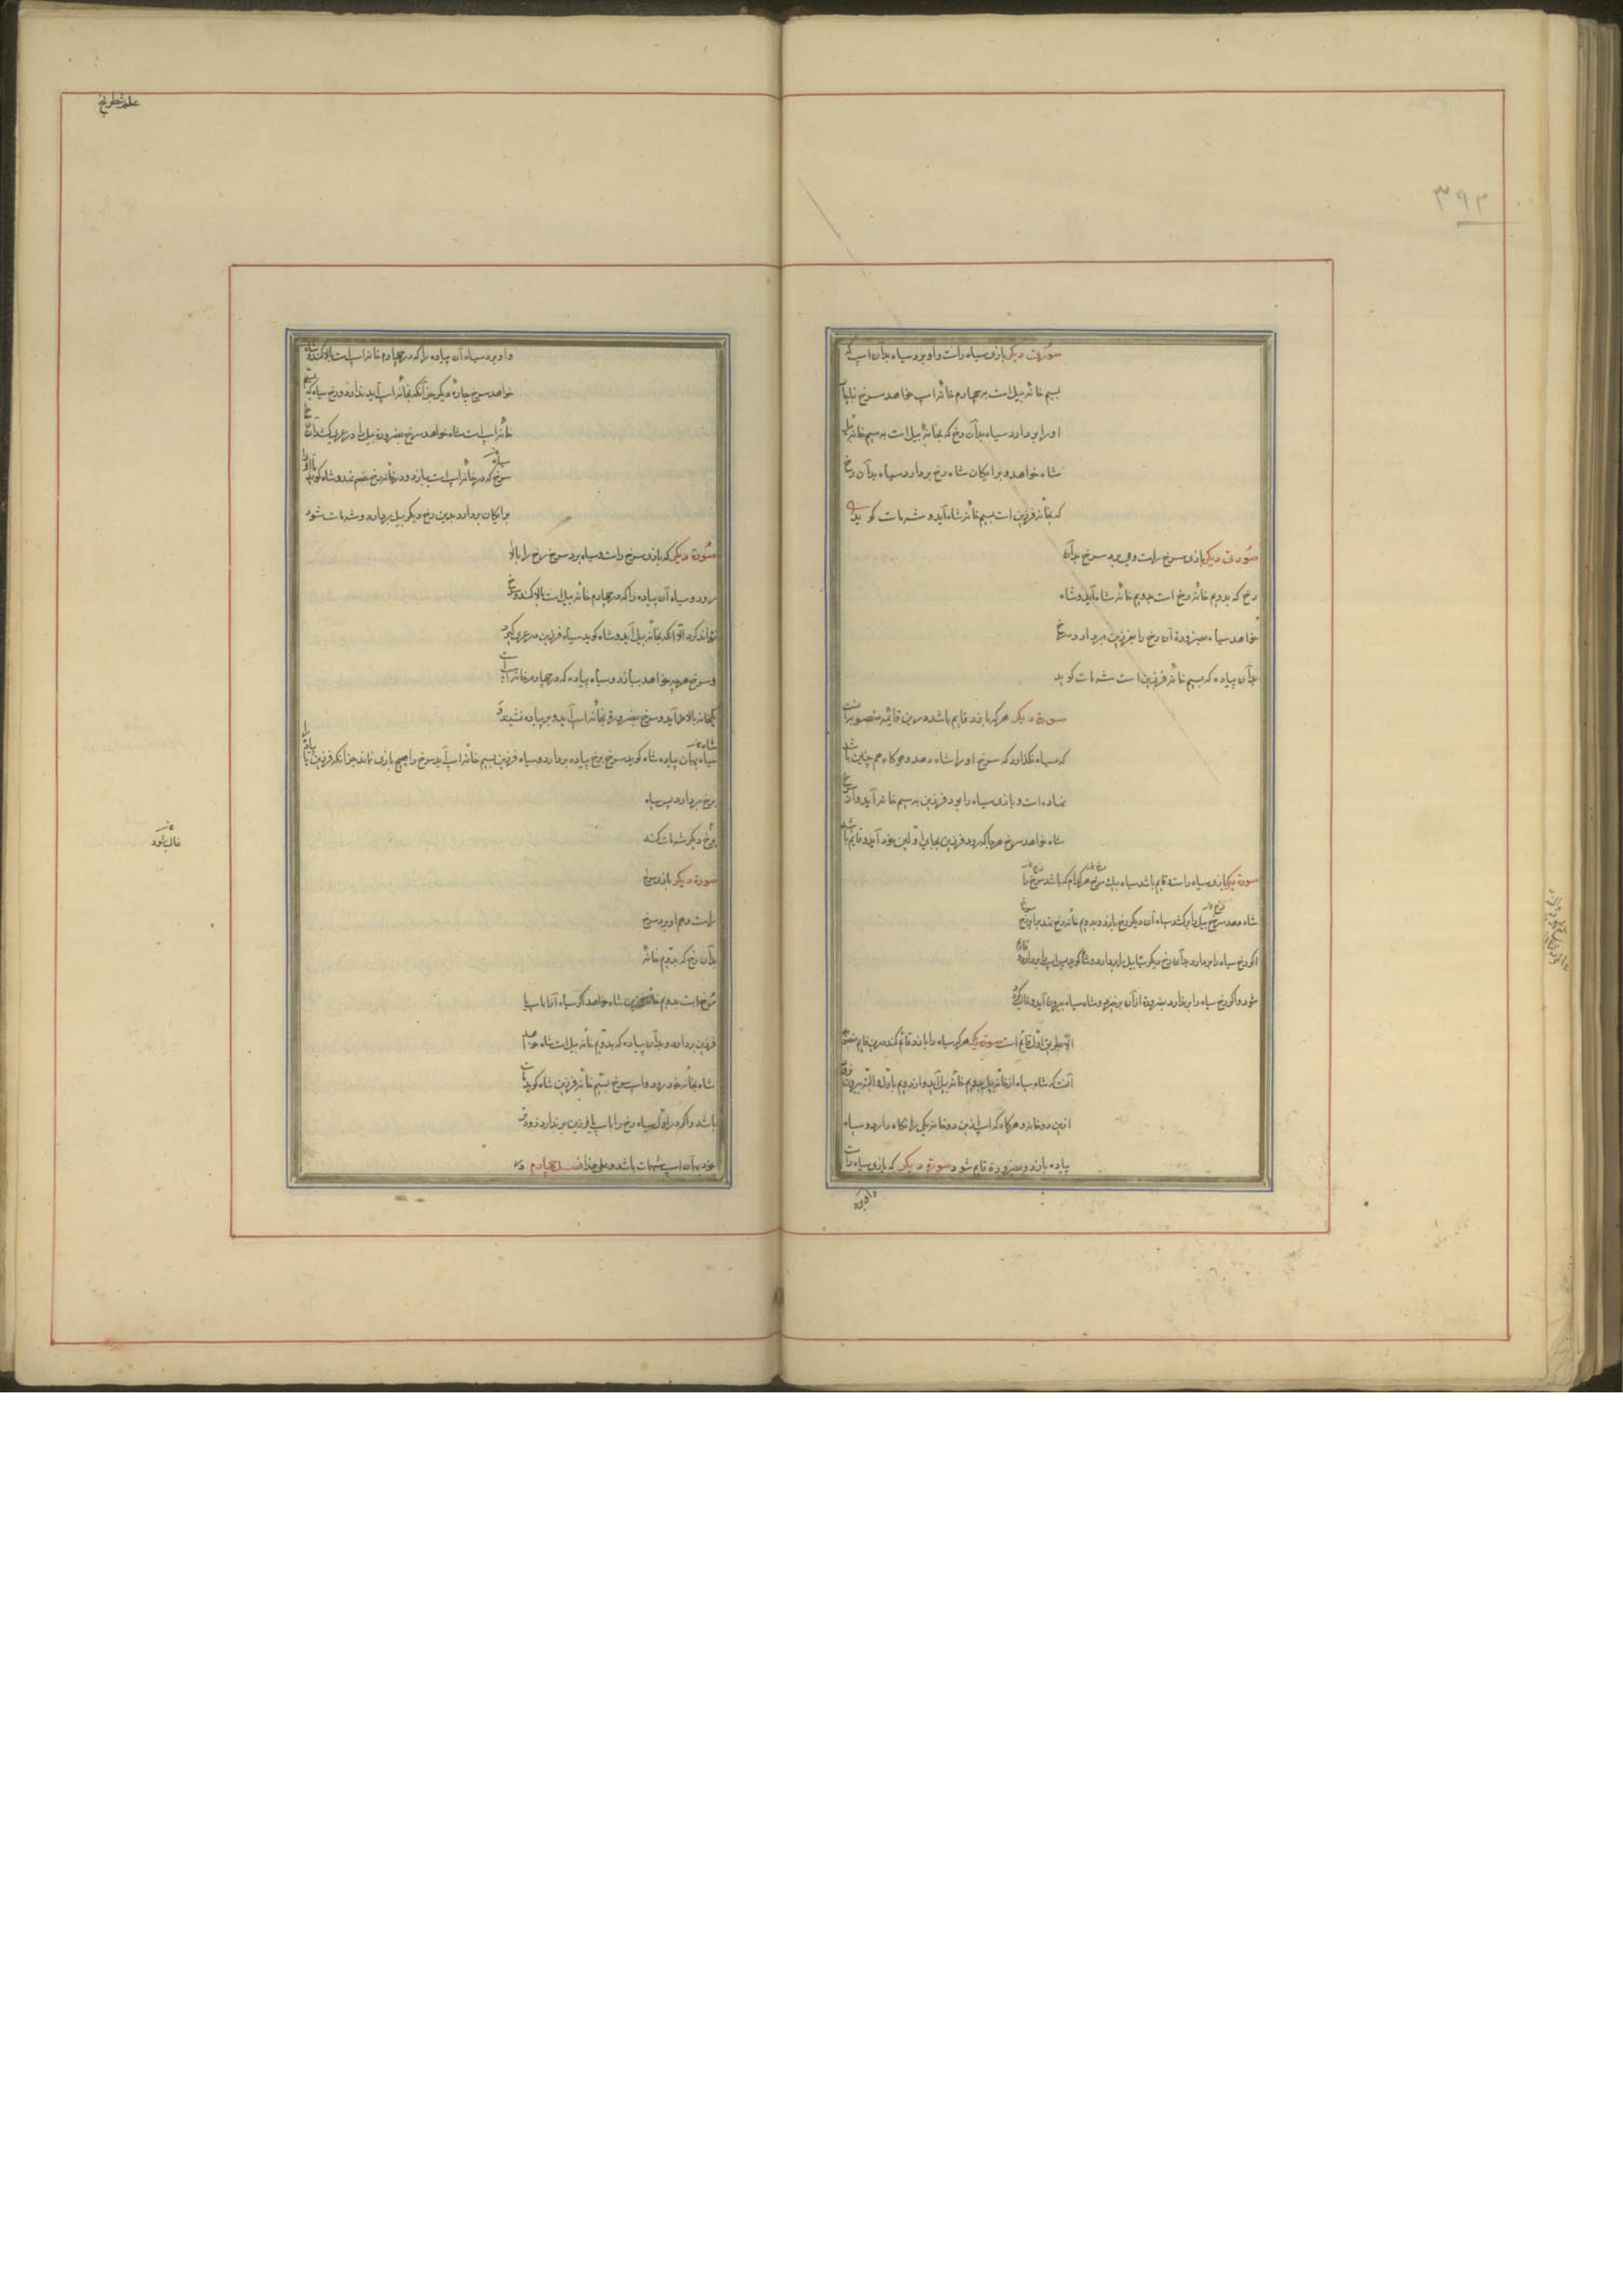 صورت دیکر بازی سیاه راست و او برد سیاه بدان اسپ که
بسیم خانه پیل است بر چهارم خانه اسپ خواهد سرخ
او را بردارد سیاه بدان رخ که بخانه پیل است به سیم خانه پیل
شاه خواهد و برایکان شاه رخ بردارد سیاه بدان رخ
که بخانه فرزین است بسیم خانه شاه آید و شه مات کوید
صورت دیکر بازی سرخ راست و می برد سرخ بدان
رخ که بدویم خانه رخ است بدویم خانه شاه آید و شاه
خواهد سیاه بضرورة آن رخ را بفرزین بردارد سرخ
بدان پیاده که بسیم خانه فرزین است شه مات کوید
صورة دیکر هر که بازد قایم باشد و درین قایمه منصوبه آنست
که سیاه نکذارد که سرخ او را شاه دهد و هرکاه هم چنین باشد
نهاده است و بازی سیاه را بود فرزین به سیم خانه آید و از رخ
شاه خواهد سرخ هرجا که رود فرزین بجای اولین خود آید و قایم باشد
صورة دیکر بازی سیاه راست و قایم باشد سیاه بیک رخ هر کدام که باشد سرخ را
شاه دهد سرخ پیل را در کشد سیاه آن دیکر رخ بازد و بدویم خانه رخ نهد برابر رخ سرخ
اکر رخ سیاه را بردارد بدان رخ دیکر پیل را بردارد و شاه کوید
شود و اکر رخ سیاه را برندارد بضرورة از آن برخیزد و شاه سیاه بیرون آید
الا بطریق اول قایم است صورة دیکر هر که سیاه را بازد قایم کند و درین قایم منصوبه
آنست که شاه سیاه از خانه پیل بدویم خانه پیل آید و از دویم باول و البته بیرون نرود
ازین دو خانه و هرکاه که اسپ ازین دو خانه یکی را نکاه دارد سیاه
پیاده بازد و بضرورة قایم شود صورة دیکر که بازی سیاه راست
و او برد
۳۹۳
علم شطرنج
و او برد سیاه آن پیاده را که در چهارم خانه اسپ است بالا کند و شاه
خواهد سرخ چارۀ دیکر جز آنکه بخانه اسپ آید ندارد و رخ سیاه که بسیم
خانه اسپ است شاه خواهد سرخ بضرورة پیل را در عری کشد آن رخ
سرخ که در خانه اسپ است بازد و در خانه رخ خصم نهد و شاه کوید تا او را
برایکان بردارد بدین رخ دیکر پیل بردارد و شه مات شود
صورة دیکر که بازی سرخ راست و سیاه برد سرخ رخ را بالا
رود و سیاه آن پیاده را که در چهارم خانه پیل است بالا کند و سرخ
نتواند کرد الا آنکه بخانه پیل آید و شاه کوید سیاه فرزین در عری کیرد
و سرخ هر چه خواهد ببازد و سیاه پیاده که در چهارم خانه اسپ است
یکخانه بالا آید و سرخ بضرورة بخانه اسپ آید و بر پیاده نشیند و
سیاه بهمان پیاده شاه کوید سرخ برخ پیاده بردارد و سیاه فرزین بسیم خانه اسپ آید سرخ را هیچ بازی نماند جز آنکه فرزین یا پیاده را
برخ بردارد پس سیاه
برخ دیکر شه مات کند
صورة دیکر بازی سرخ
راست و هم او برد سرخ
بدان رخ که بدویم خانه
سرخ است بدویم خانه فرزین شاه خواهد اکر سیاه آنرا باسپ یا
فرزین بردارد و بدان پیاده که بدویم خانه پیل است شاه خواهد
شاه بخانه خود رود و اسپ سرخ بسیم خانه فرزین شاه کوید مات
باشد و اکر در اول سیاه رخ را باسپ یا فرزین برندارد زودتر
خود بدان اسپ شه مات باشد و علی هذا فصل چهارم در
غالب شود